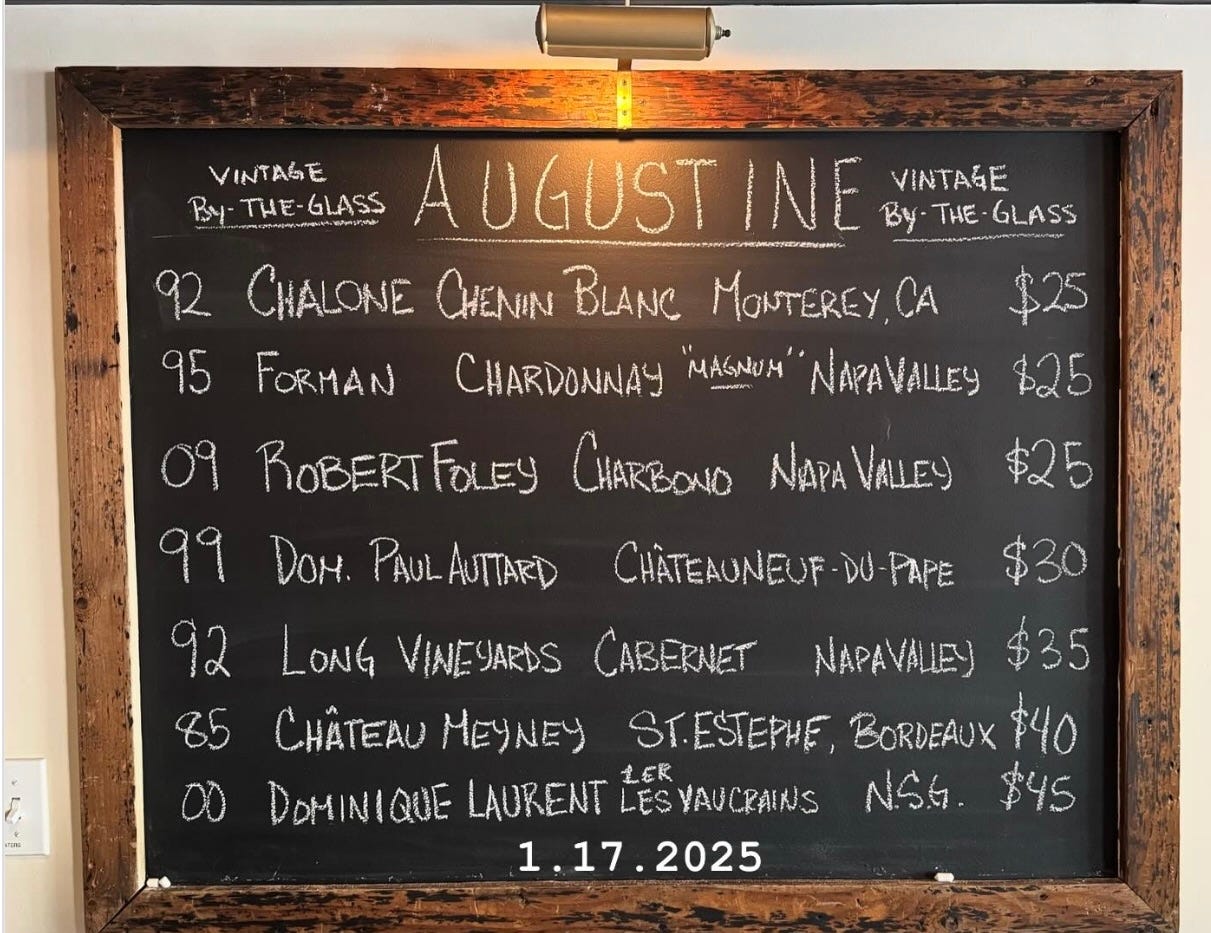 VINTAGE By-THE-GLASS
AUGUSTINE
VINTAGE By-THE-GLASS
92 CHALONE CHENIN BLANC MONTEREY, CA $25
95 FORMAN CHARDONNAY "MAGNUM" NAPA VALLEY $25
09 ROBERT FOLEY CHARBONO NAPA VALLEY $25
99 DOM. PAUL AUTTARD CHÂTEAUNEUF-DU-PAPE $30
92 LONG VINEYARDS CABERNET NAPA VALLEY $35
85 CHÂTEAU MEYNEY ST. ESTEPHE, BORDEAUX $40
00 DOMINIQUE LAURENT 1ER LES VAUCRAINS N.S.G. $45
1.17.2025